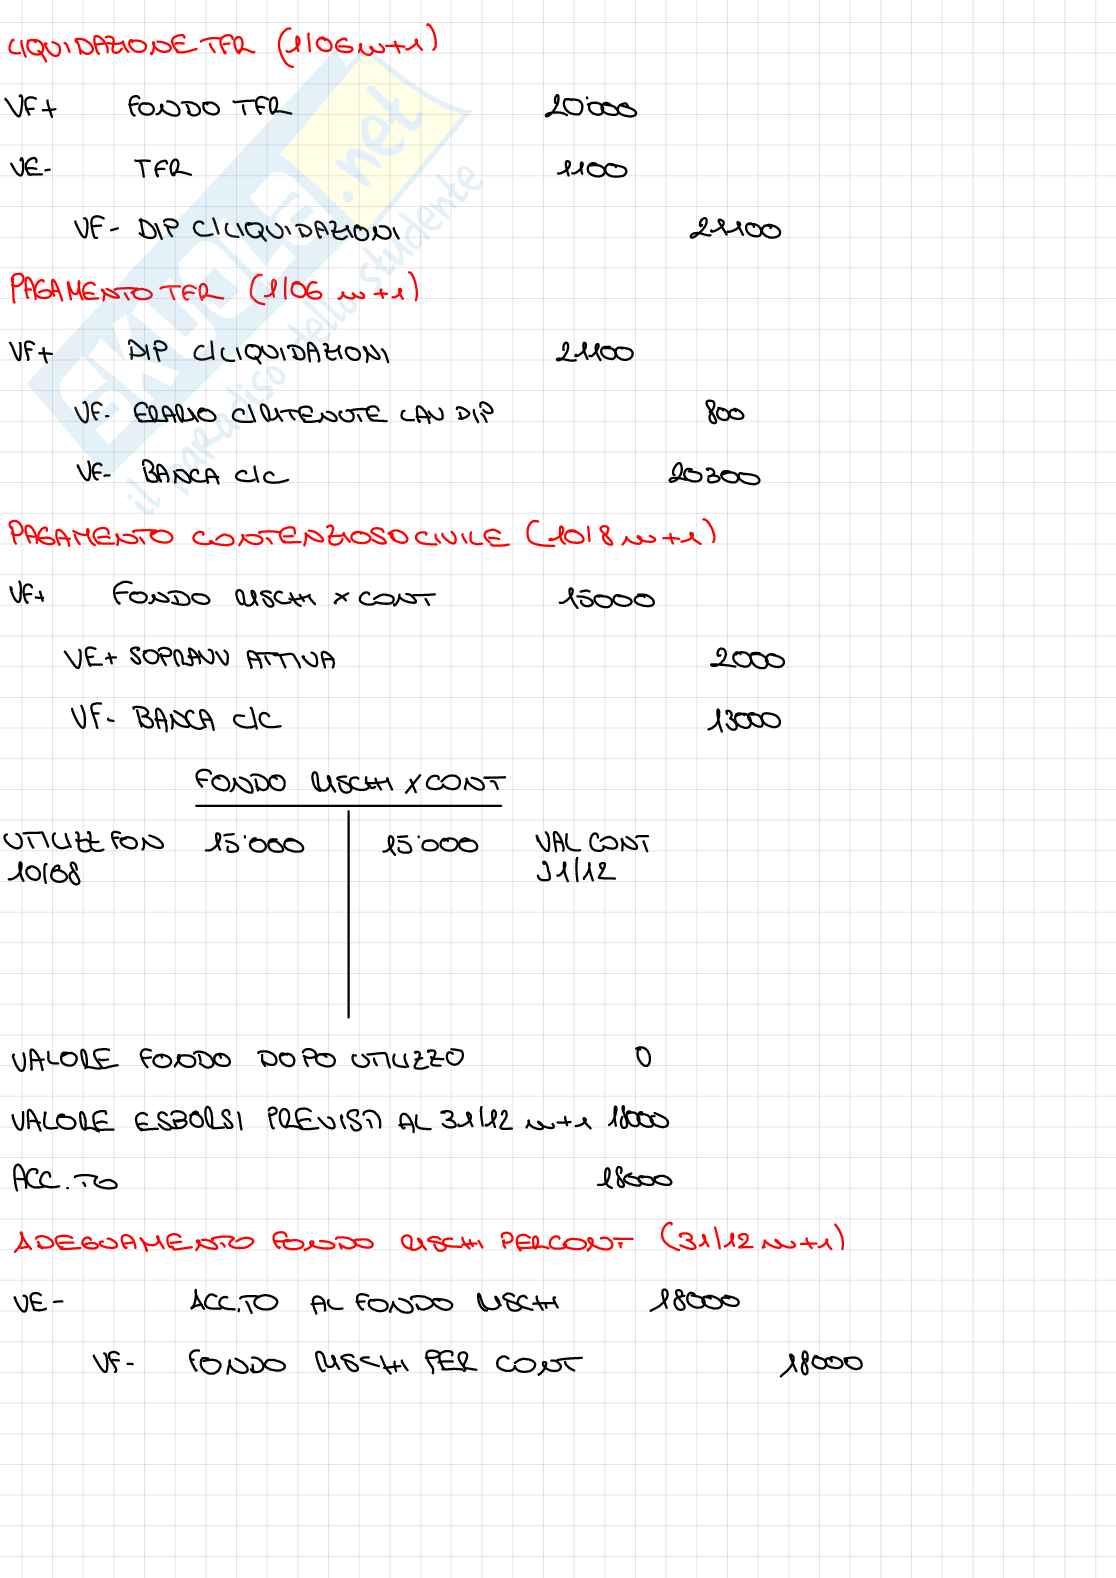 LIQUIDAZIONE TFR (1/06 n+1)
VF+ FONDO TFR 20'000
VE- TFR 1100
VF- DIP C/LIQUIDAZIONI 21100
PAGAMENTO TFR (1/06 n+1)
VF+ DIP C/LIQUIDAZIONI 21100
VF- ERARIO C/RITENUTE LAV DIP 800
VF- BANCA C/C 20300
PAGAMENTO CONTENZIOSO CIVILE (10/8 n+1)
VF+ FONDO RISCHI X CONT 15000
VE+ SOPRAVV ATTIVA 2000
VF- BANCA C/C 13000
FONDO RISCHI X CONT
UTILIZZ FON 15'000 15'000 VAL CONT
10/08 31/12
VALORE FONDO DOPO UTILIZZO 0
VALORE ESBORSI PREVISTI AL 31/12 n+1 18000
ACC.TO 18000
ADEGUAMENTO FONDO RISCHI PER CONT (31/12 n+1)
VE- ACC.TO AL FONDO RISCHI 18000
VF- FONDO RISCHI PER CONT 18000
SKUOLA.net
il paradiso dello studente